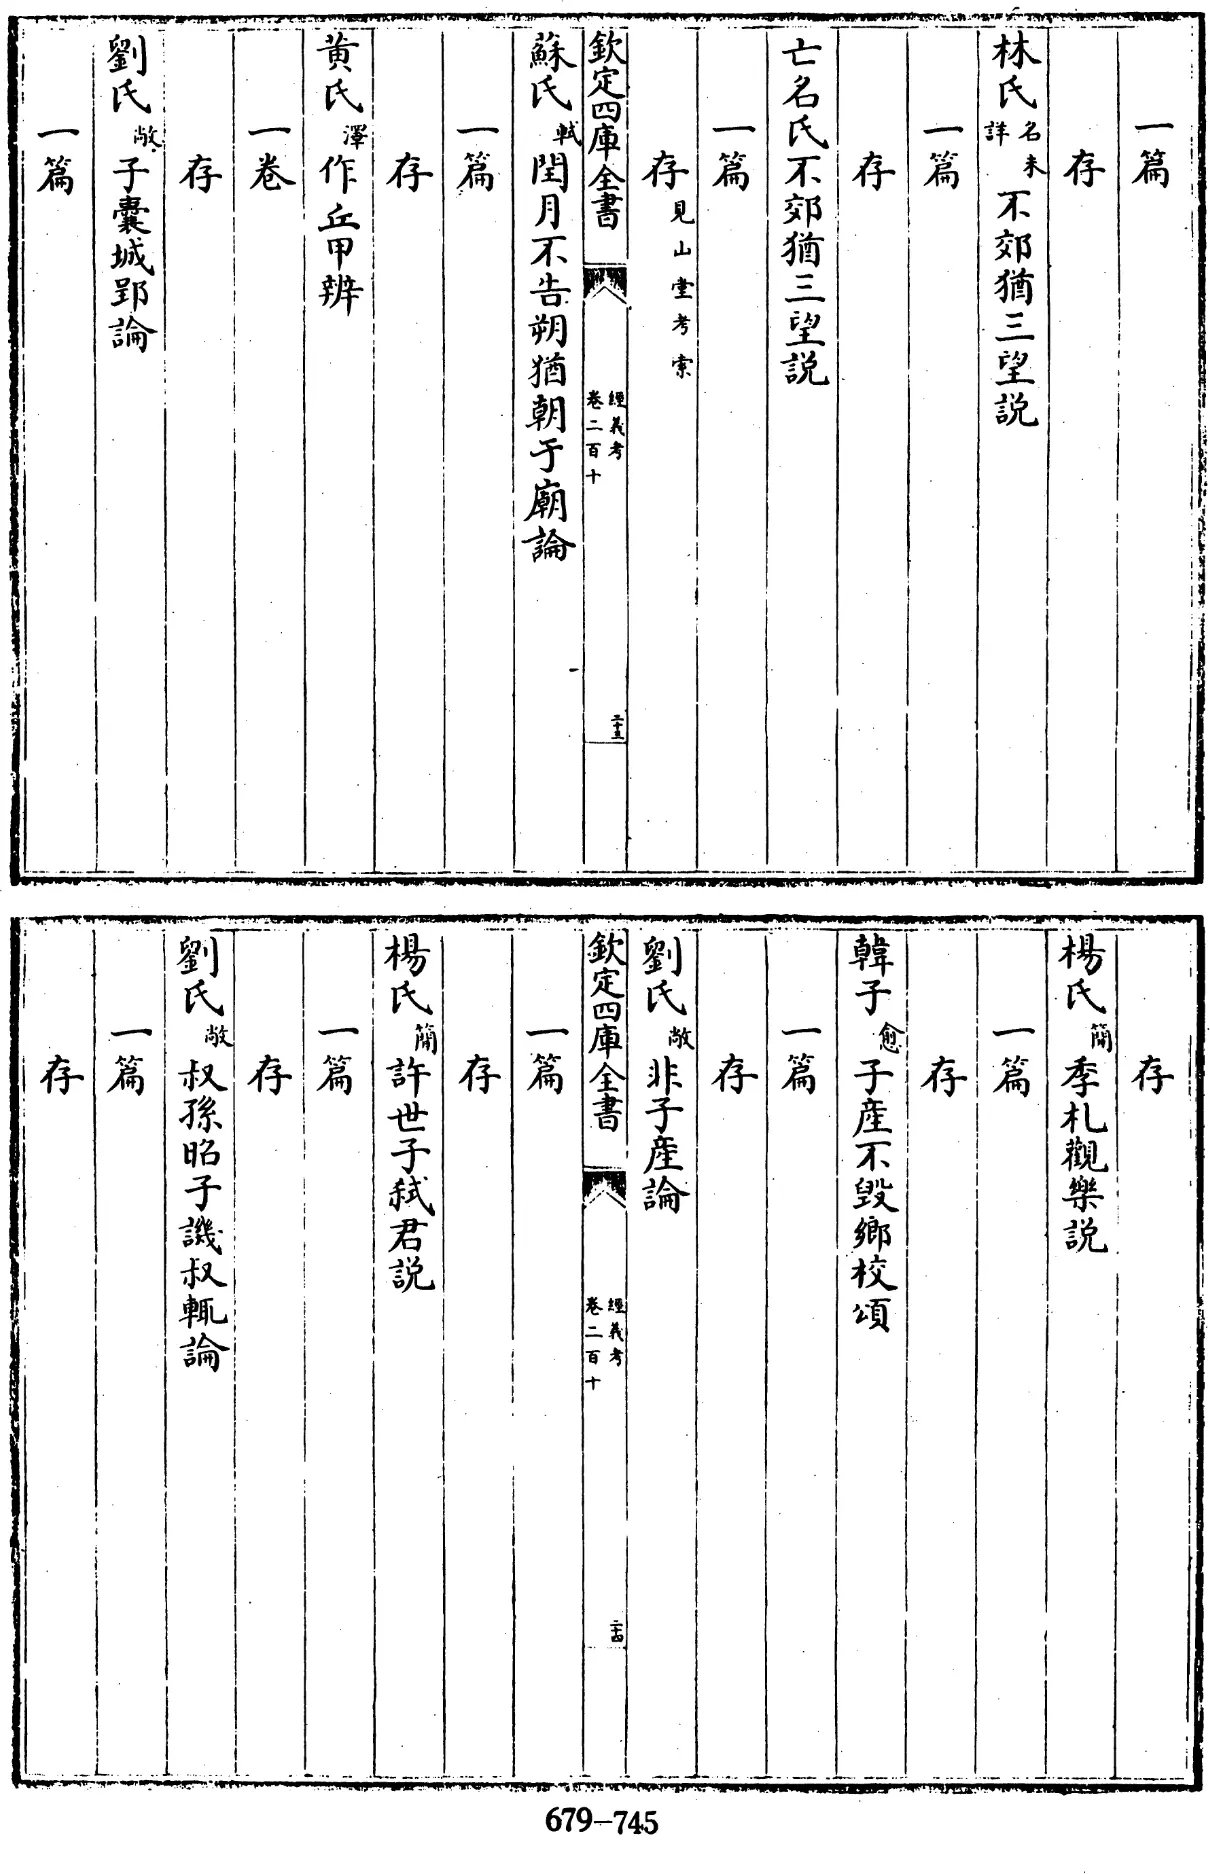 一篇
存
林氏名未詳不郊猶三望説
一篇
存
亡名氏不郊猶三望説
一篇
存見山堂考索
欽定四庫全書
經義考
卷二百十
二十三
蘇氏軾閏月不告朔猶朝于廟論
一篇
存
黄氏澤作丘甲辨
一卷
存
劉氏敞子囊城郢論
一篇
存
楊氏簡季札觀樂説
一篇
存
韓子愈子產不毁鄉校頌
一篇
存
劉氏敞非子產論
欽定四庫全書
經義考
卷二百十
二十四
一篇
存
楊氏簡許世子弑君説
一篇
存
劉氏敞叔孫昭子譏叔輒論
一篇
存
679-745